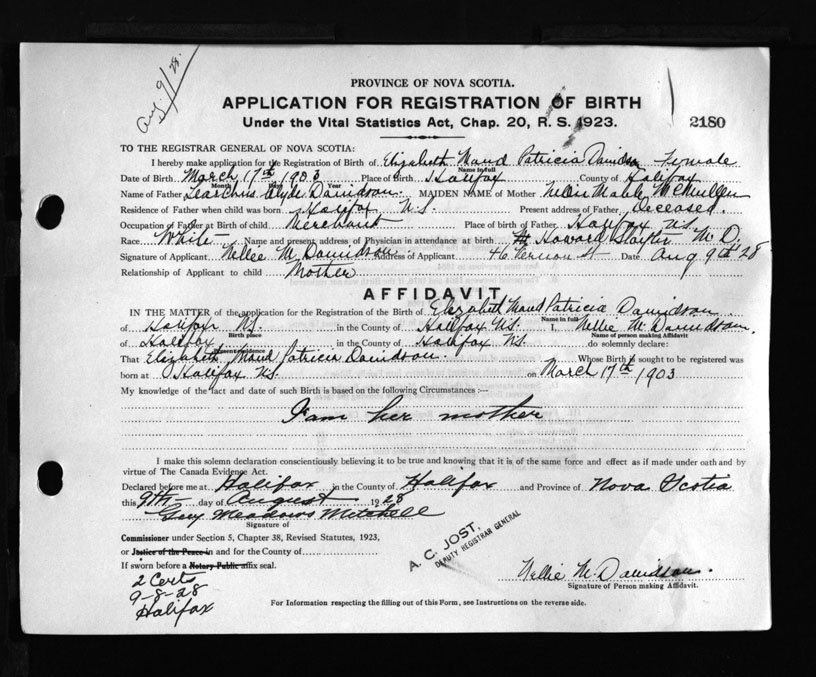 Aug 9/28.
PROVINCE OF NOVA SCOTIA.
APPLICATION FOR REGISTRATION OF BIRTH
Under the Vital Statistics Act, Chap. 20, R. S. 1923.
2180
TO THE REGISTRAR GENERAL OF NOVA SCOTIA:
I hereby make application for the Registration of Birth of Elizabeth Maud Patricia Davidson Female
Name in full
Date of Birth March 17th 1903 Place of Birth Halifax County of Halifax
Month Day Year
Name of Father Clyde Davidson. MAIDEN NAME of Mother Nellie Mable McMullen
Residence of Father when child was born Halifax N.S. Present address of Father Deceased.
Occupation of Father at Birth of child Merchant Place of birth of Father Halifax N.S.
Race White Name and present address of Physician in attendance at birth Howard M.D.
Signature of Applicant Nellie M Davidson Address of Applicant 46 Vernon St Date Aug 9th 28
Relationship of Applicant to child Mother
AFFIDAVIT.
IN THE MATTER of the application for the Registration of the Birth of Elizabeth Maud Patricia Davidson
Name in full
of Halifax N.S. in the County of Halifax N.S. I, Nellie M. Davidson,
Birth place Name of person making Affidavit
of Halifax in the County of Halifax N.S. do solemnly declare:
Present residence
That Elizabeth Maud Patricia Davidson. Whose Birth is sought to be registered was
born at Halifax N.S. on March 17th 1903
My knowledge of the fact and date of such Birth is based on the following Circumstances :—
I am her mother
I make this solemn declaration conscientiously believing it to be true and knowing that it is of the same force and effect as if made under oath and by
virtue of The Canada Evidence Act.
Declared before me at Halifax in the County of Halifax and Province of Nova Scotia
this 9th day of August 1928
Guy Meadows Mitchell
Signature of
Commissioner under Section 5, Chapter 38, Revised Statutes, 1923,
or Justice of the Peace in and for the County of
If sworn before a Notary Public affix seal.
A. C. JOST,
DEPUTY REGISTRAR GENERAL
Nellie M. Davidson.
Signature of Person making Affidavit.
2 Certs
9-8-28
Halifax
For Information respecting the filling out of this Form, see Instructions on the reverse side.